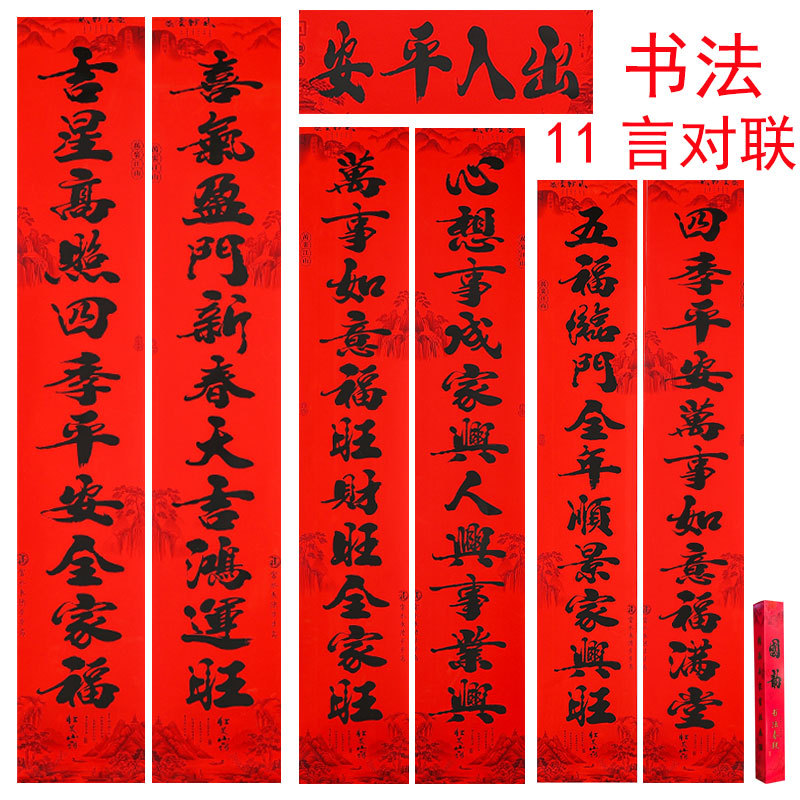 书法
11 言对联
出入平安
喜氣盈門新春天吉鴻運旺
吉星高照四季平安全家福
心想事成家興人興事業興
萬事如意福旺財旺全家旺
四季平安萬事如意福满堂
五福臨門全年順景家興旺
國韵